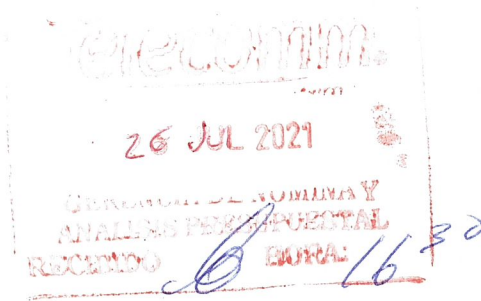 26 JUL 2021
GERENCIA DE NOMINA Y
ANALISIS PRESUPUESTAL
RECIBIDO HORA: 16 30